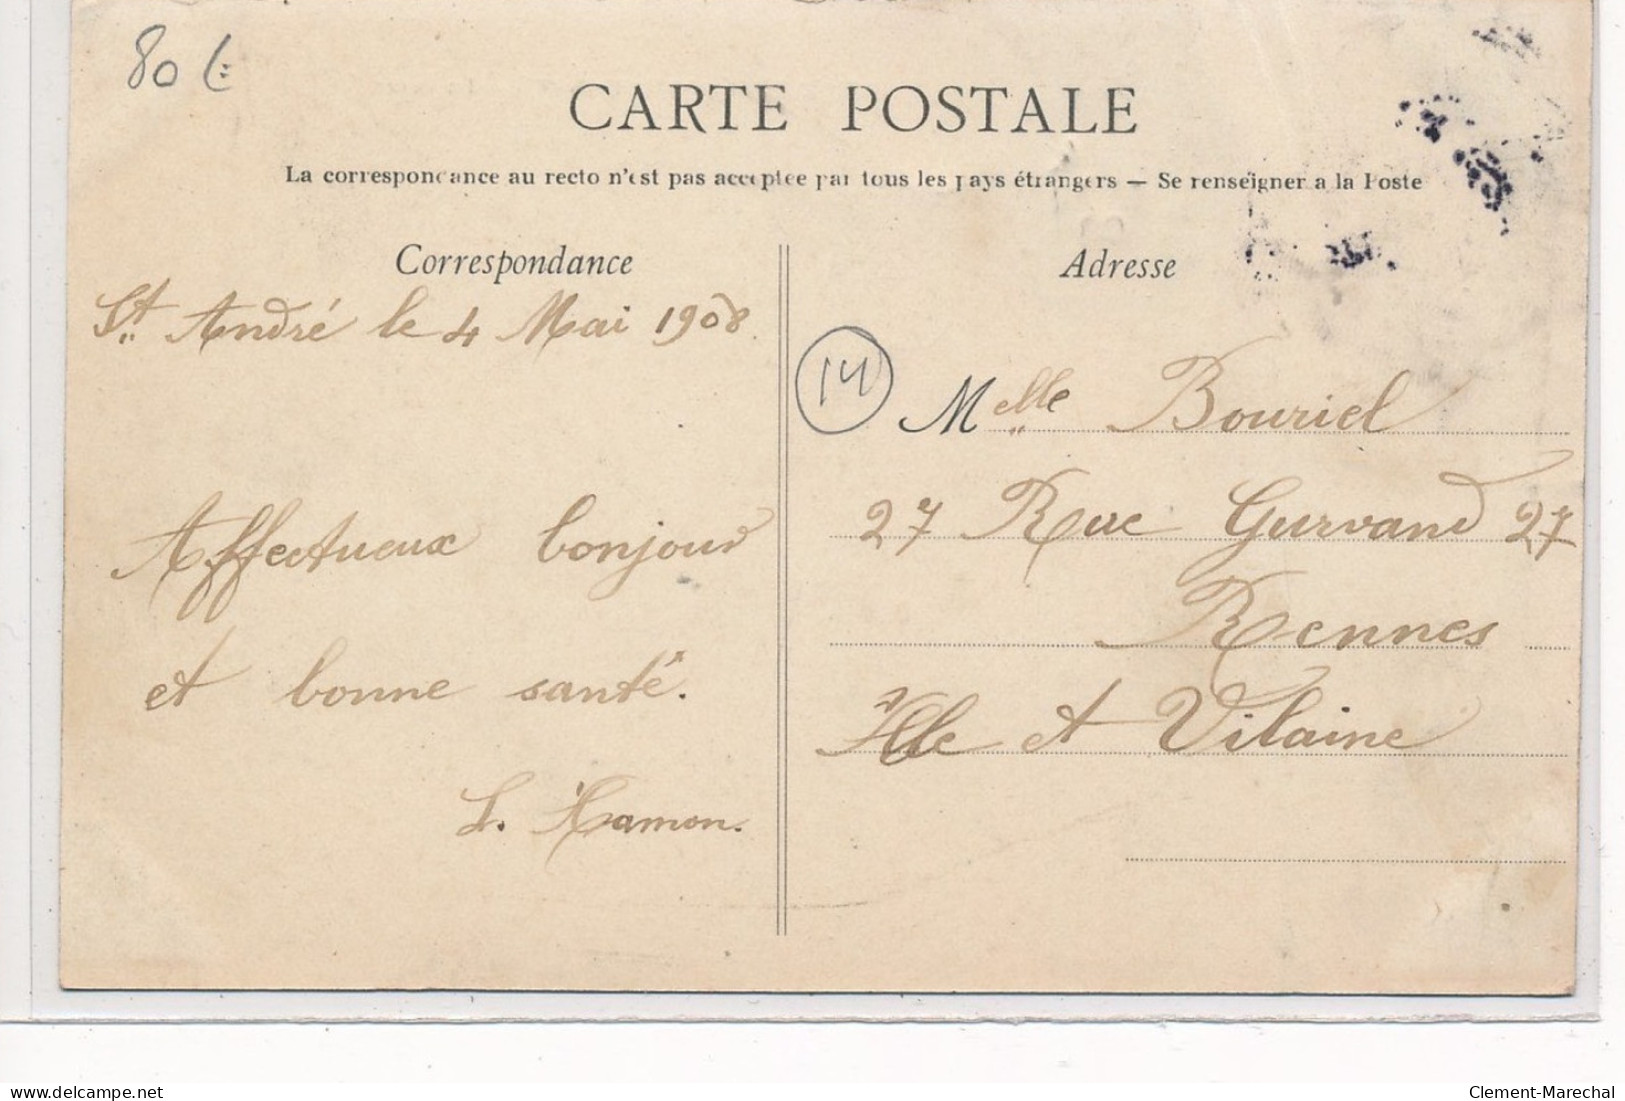 80 €
CARTE POSTALE
La correspondance au recto n'est pas acceptée par tous les pays étrangers — Se renseigner a la Poste
Correspondance
St. André le 4 Mai 1908.
Affectueux bonjour
et bonne santé.
L. Hamon.
Adresse
14
Melle Bouriel
27 Rue Gurvand 27
Rennes
Ille et Vilaine
delcampe.net
Clement-Marechal